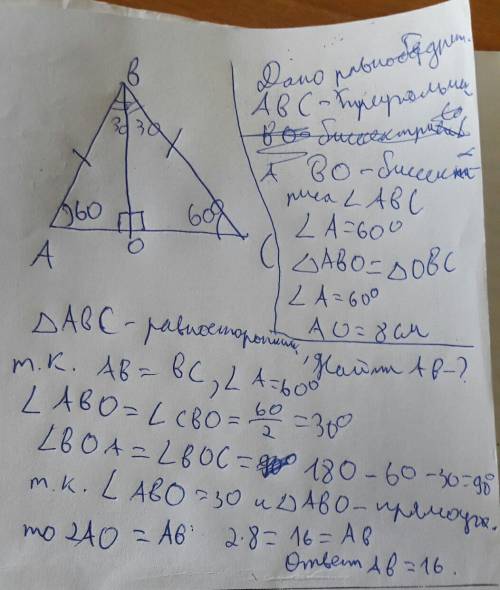 B
30 30
60 60
A O C
Дано равнобедрен.
ABC - треугольник
BO - биссектриса
A BO - биссек
триса ∠ABC
∠A = 60°
△ABO = △OBC
∠A = 60°
AO = 8 см
Найти AB - ?
△ABC - равносторонний,
т.к. AB = BC, ∠A = 60°
∠ABO = ∠CBO = 60/2 = 30°
∠BOA = ∠BOC = 180 - 60 - 30 = 90°
т.к. ∠ABO = 30 и △ABO - прямоуг.
то 2AO = AB 2·8 = 16 = AB
Ответ AB = 16.